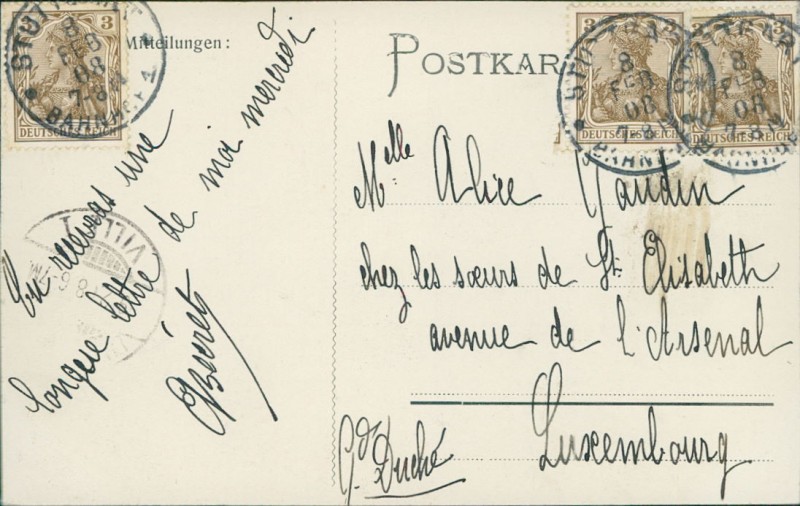 STUTTGART
8
FEB
08
7-8N
BAHNHOF
3
DEUTSCHES REICH
Mitteilungen:
Tu recevras une
longue lettre de moi mercredi
POSTKAR
3
DEUTSCHES REICH
3
DEUTSCHES REICH
STUTTGART
8
FEB
08
7-8N
BAHNHOF
STUTTGART
8
FEB
08
7-8N
BAHNHOF
Melle Alice
chez les sœurs de St. Elisabeth
avenue de l'Arsenal
Gd Duché
Luxembourg
VILLE